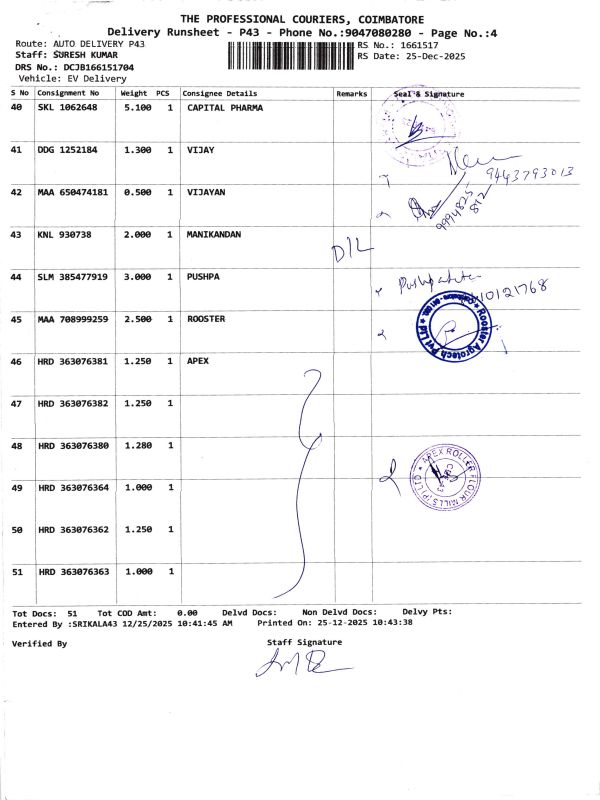 THE PROFESSIONAL COURIERS, COIMBATORE
Delivery Runsheet - P43 - Phone No.:9047080280 - Page No.:4
Route: AUTO DELIVERY P43 RS No.: 1661517
Staff: SURESH KUMAR RS Date: 25-Dec-2025
DRS No.: DCJB166151704
Vehicle: EV Delivery
S No Consignment No Weight PCS Consignee Details Remarks Seal & Signature
40 SKL 1062648 5.100 1 CAPITAL PHARMA
41 DDG 1252184 1.300 1 VIJAY
9443793013
42 MAA 650474181 0.500 1 VIJAYAN
9994825
812
43 KNL 930738 2.000 1 MANIKANDAN
D/L
44 SLM 385477919 3.000 1 PUSHPA
10121768
45 MAA 708999259 2.500 1 ROOSTER
Rooster Agrotech Pvt Ltd
46 HRD 363076381 1.250 1 APEX
47 HRD 363076382 1.250 1
48 HRD 363076380 1.280 1
APEX ROLLER FLOUR MILLS (P) LTD
49 HRD 363076364 1.000 1
50 HRD 363076362 1.250 1
51 HRD 363076363 1.000 1
Tot Docs: 51 Tot COD Amt: 0.00 Delvd Docs: Non Delvd Docs: Delvy Pts:
Entered By :SRIKALA43 12/25/2025 10:41:45 AM Printed On: 25-12-2025 10:43:38
Verified By Staff Signature